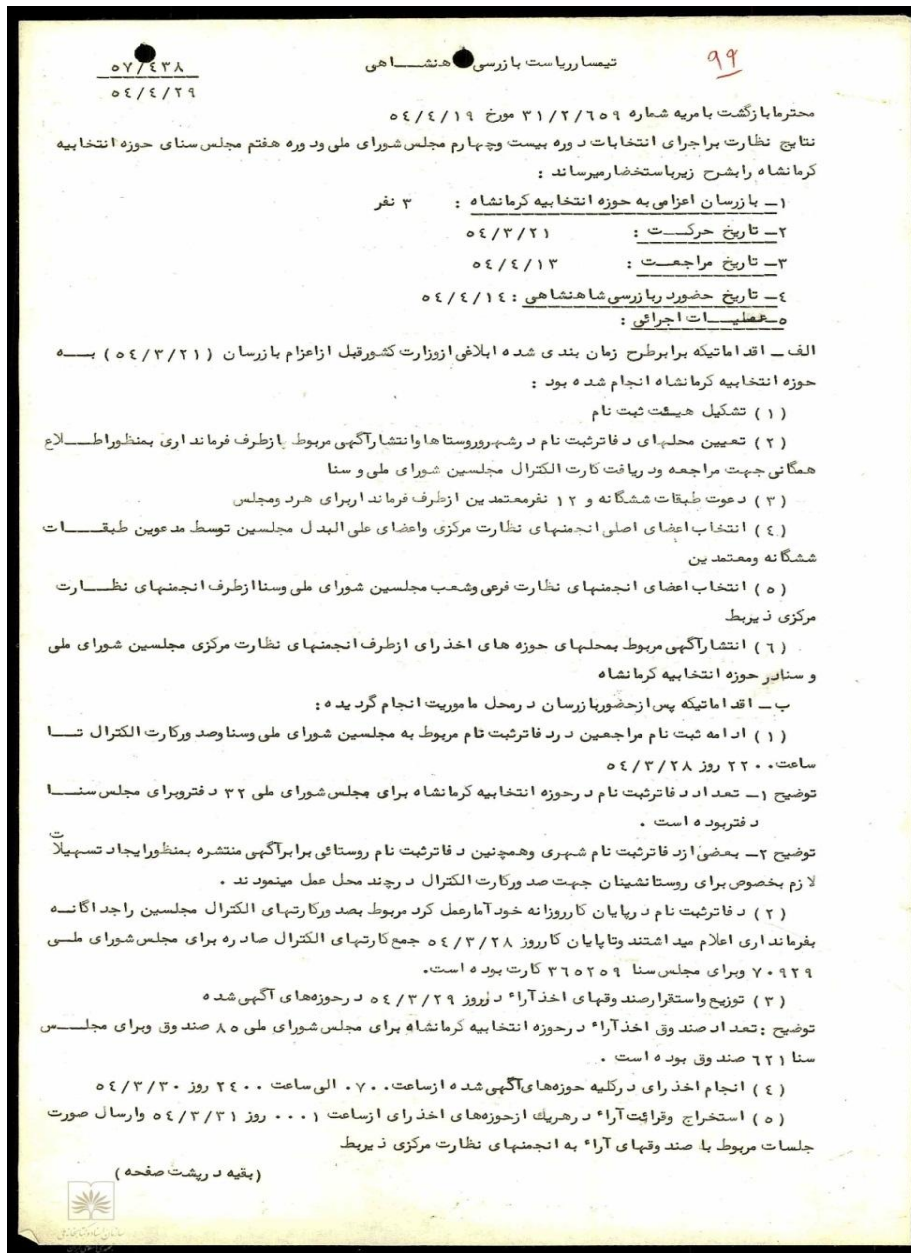 ۵۷/۴۳۸
۵۴/۴/۲۹
۹۹
تیمسار ریاست بازرسی شاهنشـــاهی
محترما بازگشت بامریه شماره ۳۱/۲/۶۵۹ مورخ ۵۴/۴/۱۹
نتایج نظارت براجرای انتخابات دوره بیست وچهارم مجلس شورای ملی ودوره هفتم مجلس سنای حوزه انتخابیه
کرمانشاه رابشرح زیرباستحضارمیرساند :
۱ــ بازرسان اعزامی به حوزه انتخابیه کرمانشاه : ۳ نفر
۲ــ تاریخ حرکـــت : ۵۴/۳/۲۱
۳ــ تاریخ مراجعـــت : ۵۴/۴/۱۳
۴ــ تاریخ حضوردربازرسی شاهنشاهی : ۵۴/۴/۱۴
۵ــ عملیـــات اجرائی :
الف ــ اقداماتیکه برابرطرح زمان بندی شده ابلاغی ازوزارت کشورقبل ازاعزام بازرسان (۵۴/۳/۲۱) بـــه
حوزه انتخابیه کرمانشاه انجام شده بود :
(۱) تشکیل هیئت ثبت نام
(۲) تعیین محلهای دفاترثبت نام درشهروروستاها وانتشارآگهی مربوط ازطرف فرمانداری بمنظوراطـــلاع
همگانی جهت مراجعه ودریافت کارت الکترال مجلسین شورای ملی و سنا
(۳) دعوت طبقات ششگانه و ۱۲ نفرمعتمدین ازطرف فرمانداربرای هردومجلس
(۴) انتخاب اعضای اصلی انجمنهای نظارت مرکزی واعضای علی البدل مجلسین توسط مدعوین طبقـــات
ششگانه ومعتمدین
(۵) انتخاب اعضای انجمنهای نظارت فرعی وشعب مجلسین شورای ملی وسنا ازطرف انجمنهای نظـــارت
مرکزی ذیربط
(۶) انتشارآگهی مربوط بمحلهای حوزه های اخذ رای ازطرف انجمنهای نظارت مرکزی مجلسین شورای ملی
و سنادر حوزه انتخابیه کرمانشاه
ب ــ اقداماتیکه پس ازحضوربازرسان درمحل ماموریت انجام گردیده :
(۱) ادامه ثبت نام مراجعین دردفاترثبت نام مربوط به مجلسین شورای ملی وسنا وصدورکارت الکترال تـــا
ساعت ۲۲۰۰ روز ۵۴/۳/۲۸
توضیح ۱ــ تعداد دفاترثبت نام درحوزه انتخابیه کرمانشاه برای مجلس شورای ملی ۳۲ دفتروبرای مجلس سنـــا
دفتربوده است .
توضیح ۲ــ بعضی ازدفاترثبت نام شهری وهمچنین دفاترثبت نام روستائی برابرآگهی منتشره بمنظورایجاد تسهیلات
لازم بخصوص برای روستانشینان جهت صدورکارت الکترال درچند محل عمل مینمودند .
(۲) دفاترثبت نام درپایان کارروزانه خودآمارعمل کرد مربوط بصدورکارتهای الکترال مجلسین راجداگانـــه
بفرمانداری اعلام میداشتند وتاپایان کارروز ۵۴/۳/۲۸ جمع کارتهای الکترال صادره برای مجلس شورای ملـــی
۷۰۹۲۹ وبرای مجلس سنا ۳۶۵۲۵۹ کارت بوده است.
(۳) توزیع واستقرارصندوقهای اخذ آراء درروز ۵۴/۳/۲۹ درحوزه‌های آگهی شده
توضیح : تعداد صندوق اخذ آراء درحوزه انتخابیه کرمانشاه برای مجلس شورای ملی ۸۵ صندوق وبرای مجلـــس
سنا ۶۲۱ صندوق بوده است .
(۴) انجام اخذ رای درکلیه حوزه‌های آگهی شده ازساعت ۰۷۰۰ الی ساعت ۲۴۰۰ روز ۵۴/۳/۳۰
(۵) استخراج وقرائت آراء درهریک ازحوزه‌های اخذ رای ازساعت ۰۰۰۱ روز ۵۴/۳/۳۱ وارسال صورت
جلسات مربوط با صندوقهای آراء به انجمنهای نظارت مرکزی ذیربط
(بقیه درپشت صفحه)